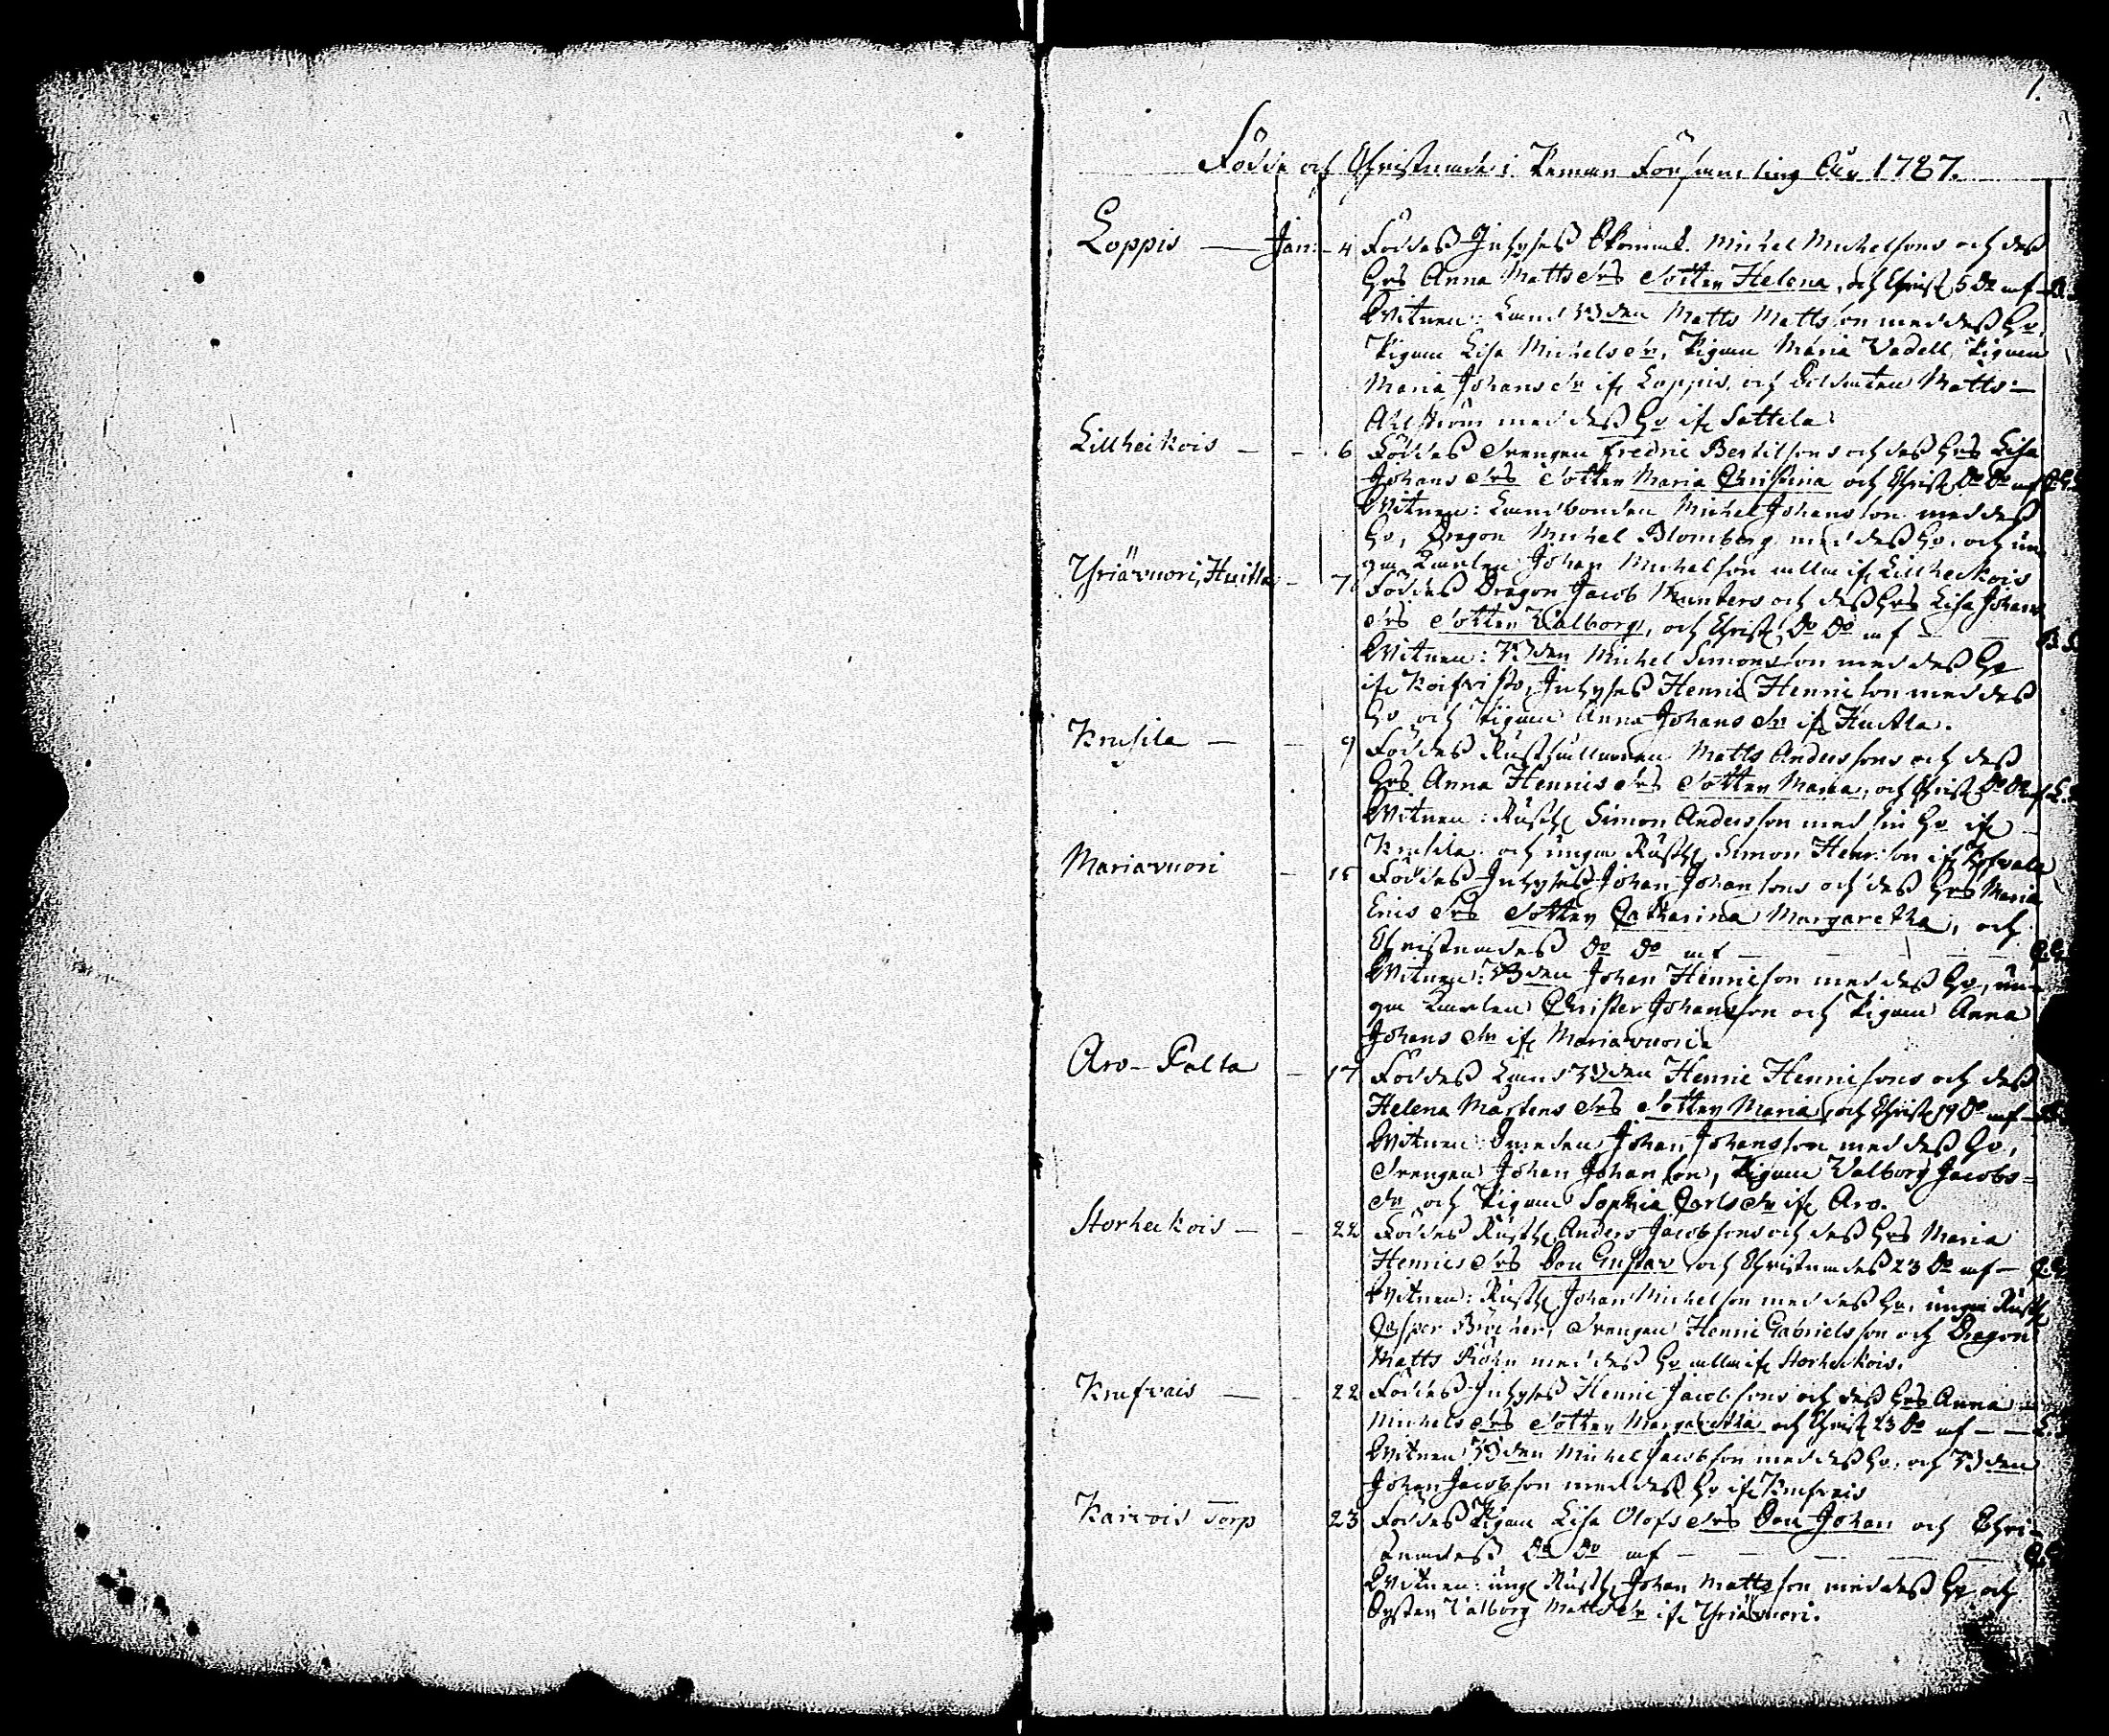 1.
Födde och Christnade i Pemar Församling Åår 1787.
Loppis — Jan: - 4 Föddes Inhyses Michel Michelsons och dess
Hus Anna Matts drs dotter Helena, och Christ 5 do af
Witnen: Land Bden Matts Matts son med dess Hu,
Pigan Lisa Michels dr, Pigan Maria Wadell, Pigan
Maria Johans dr if Loppis, och Soldaten Matts
med dess Hu if Sattela
Lillheikois — - 6 Föddes Drengen Fredric Bertilsons och dess Hus Lisa
Johans drs dotter Maria Christina och Christ do do af
Witnen: Landbonden Michel Johansson med dess
Hu, Dragon Michel Blomberg med dess Hu, och un-
ga Karlen Johan Michelsson alla if Lillheikois
Yriävuori, Huitla - 7 Föddes Dragon Jacob Munters och dess Hus Lisa Johans
drs dotter Walborg, och Christ do do af
Witnen: Bden Michel Simonsson med dess Hu
if Koifvisto, Inhyses Henric Henricson med dess
Hu och Pigan Anna Johans dr if Huitla.
Krusila — - 9 Föddes Rusthållaren Matts Anderssons och dess
Hus Anna Henrics drs dotter Maria, och Christ do do af
Witnen: Rusth Simon Andersson med sin Hu if
Krusila och unga Rusth Simon Henricson if
Mariavuori - 15 Föddes Inhyses Johan Johansons och dess Hus Maria
Erics drs dotter Catharina Margaretha, och
Christnades do do af
Witnen: Bden Johan Henricson med dess Hu, un-
ga Karlen Christer Johansson och Pigan Anna
Johans dr if Mariavuori
Aro-Palta - 17 Föddes Land Bden Henric Henricsons och dess
Helena Martens drs dotter Maria, och Christ 19 do af
Witnen: Johan Johansson med dess Hu,
Drengen Johan Johanson, Pigan Walborg Jacobs=
dr och Pigan Sophia Carls dr if Aro.
Storheikois — - 22 Föddes Rusth Anders Jacobsons och dess Hus Maria
Henrics drs Son Gustav och Christnades 23 do af —
Witnen: Rusth Johan Michelson med dess Hu, unga Rusth
Casper Drengen Henric Gabrielsson och Dragon
Matts med dess Hu alla if Storheikois.
Krufvais — - 22 Föddes Inhyses Henric Jacobsons och dess Hus Anna
Michels drs dotter Margaretha och Christ 23 do af — —
Witnen Bden Michel Jacobson med dess Hu, och Bden
Johan Jacobson med dess Hu if Krufvais
Karvois Torp 23 Föddes Pigan Lisa Olofs drs Son Johan och Chri-
stnades do do af —
Witnen: ung Rusth Johan Mattsson med dess Hu och
Systern Valborg Matts dr if Yriävuori.